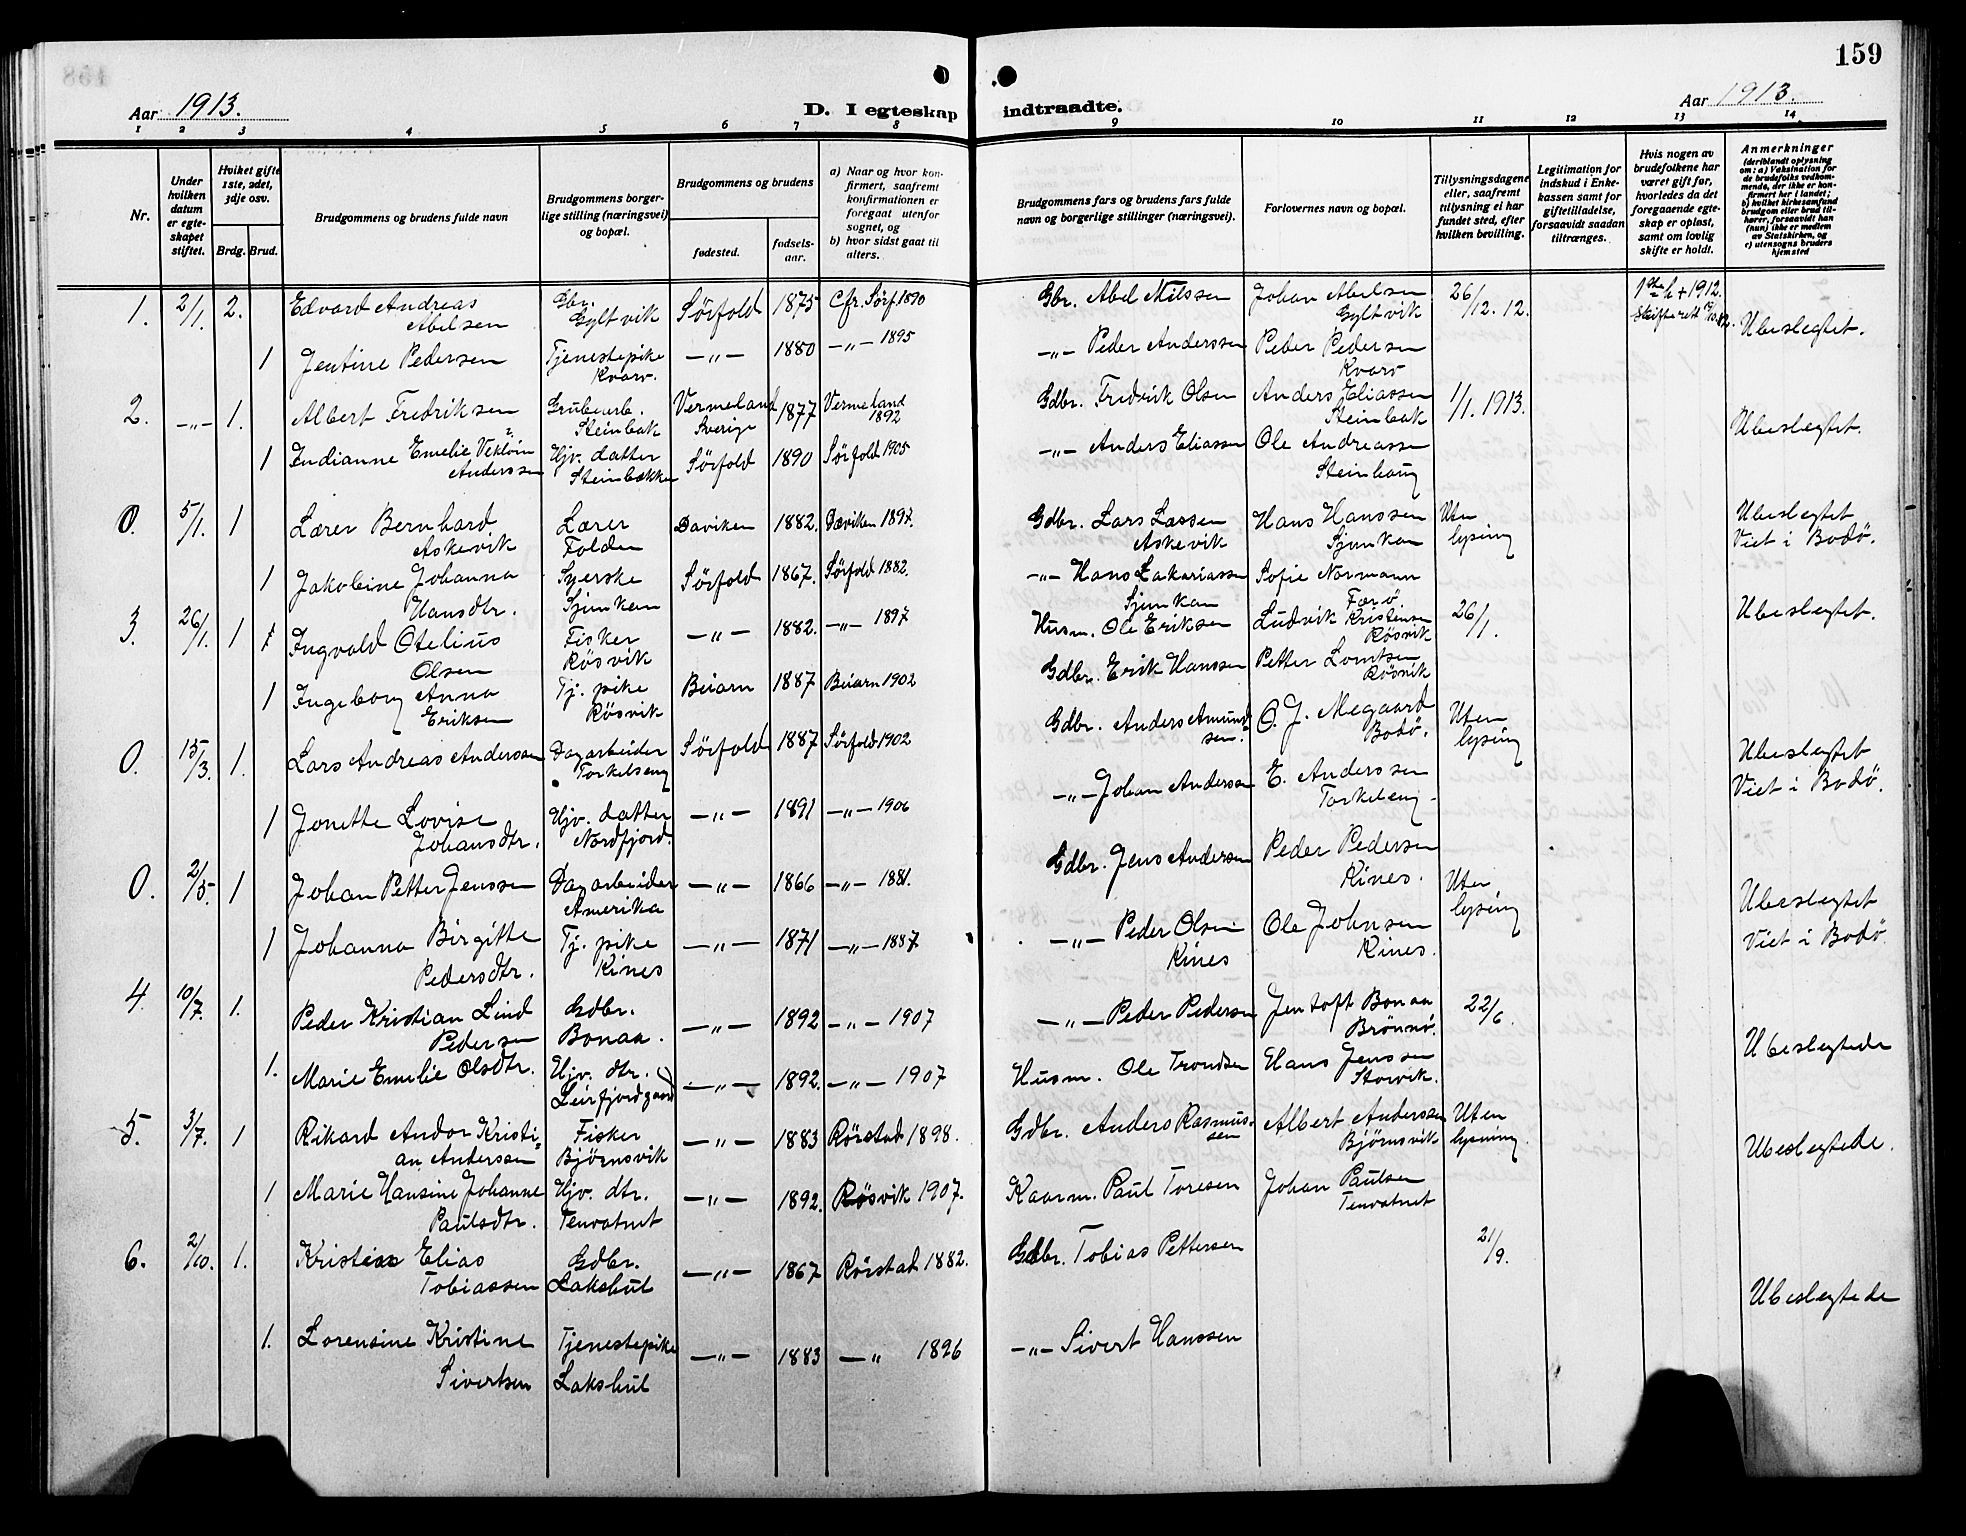 159
Aar 1913.
D. I egteskap indtraadte.
Aar 1913.
1 2 3 4 5 6 7 8 9 10 11 12 13 14
Nr.
Under hvilken datum er egteskapet stiftet.
Hviket gifte 1ste, 2det, 3dje osv.
Brdg. Brud.
Brudgommens og brudens fulde navn
Brudgommens borgerlige stilling (næringsvei) og bopæl.
Brudgommens og brudens
fødested.
fødselsaar.
a) Naar og hvor konfirmert, saafremt konfirmationen er foregaat utenfor sognet, og
b) hvor sidst gaat til alters.
Brudgommens fars og brudens fars fulde navn og borgerlige stillinger (næringsvei).
Forlovernes navn og bopæl.
Tillysningsdagene eller, saafremt tillysning ei har fundet sted, efter hvilken bevilling.
Legitimation for indskud i Enkekassen samt for giftetilladelse, forsaavidt saadan tiltrænges.
Hvis nogen av brudefolkene har været gift før, hvorledes da det foregaaende egteskap er opløst, samt om lovlig skifte er holdt.
Anmerkninger
(deriblandt oplysning om: a) Vaksination for de brudefolks vedkommende, der ikke er konfirmert her i landet; b) hvilket kirkesamfund brudgom eller brud tilhører, forsaavidt han (hun) ikke er medlem av Statskirken, og c) utensogns bruders hjemsted
1. 2/1. 2. Edvard Andreas Abelsen Gbr. Gyltvik Sörfold 1875 Cfr. Sörf. 1890 Gbr. Abel Nilssen Johan Abelsen Gyltvik 26/12. 12. + 1912. Ubeslegtet.
1 Jentine Pedersen Tjenestepike Kvarv. —„— 1880 —„— 1895 —„— Peder Anderssen Peder Pedersen Kvarv
2. —„— 1. Albert Fredriksen Grubearb. Steinbak Vermeland Sverige 1877 Vermeland 1892 Gdbr. Fredrik Olsen Anders Eliassen Steinbak 1/1. 1913. Ubeslegtet.
1 Indianne Emelie Anderssen Hjv. datter Steinbækken Sörfold 1890 Sörfold 1905 —„— Anders Eliassen Ole Andreassen Steinhaug
0. 5/1. 1 Lærer Bernhard Askevik Lærer Folden Daviken 1882. Daviken 1897. Gdbr. Lars Lassen Askevik Hans Hanssen Sjunkan Uten lysing Ubeslegtet Viet i Bodö.
1 Jakobine Johanna Hansdtr. Syerske Sjunkan Sörfold 1867. Sörfold 1882. —„— Hans Zakariassen Sjunkan Sofie Normann Færö
3. 26/1. 1 Ingvald Otelius Olsen Fisker Rösvik —„— 1882. —„— 1897 Husm. Ole Eriksen Ludvik Kristensen Rösvik 26/1. Ubeslegtet.
1 Ingeborg Anna Eriksen Tj. pike Rösvik Beiarn 1887 Beiarn 1902 Gdbr. Erik Hanssen Petter Lorntsen Rösvik
0. 15/3. 1. Lars Andreas Anderssen Dagarbeider Torkelseng Sörfold 1887 Sörfold 1902 Gdbr. Anders Amundsen. O. J. Megaard Bodö. Uten lysing Ubeslegtet Viet i Bodö.
1 Jonette Lovise Johansdtr. Hjv. datter Nordfjord. —„— 1891 —„— 1906 —„— Johan Anderssen E. Anderssen Torkeleng
0. 2/5. 1 Johan Petter Jenssen Dagarbeider Amerika —„— 1866 —„— 1881. Gdbr. Jens Andersen Peder Pedersen Kines. Uten lysing Ubeslegtet Viet i Bodö.
1 Johanna Birgitte Pedersdtr. Tj. pike Kines —„— 1871 —„— 1887 —„— Peder Olsen Kines Ole Johnsen Kines.
4. 10/7. 1. Peder Kristian Lind Pedersen Gdbr. Bonaa. —„— 1892 —„— 1907 —„— Peder Pedersen Jentoft Bonaa Brönnö. 22/6. Ubeslegtede
1. Marie Emelie Olsdtr. Hjv. dtr. Leirfjordgaard —„— 1892. —„— 1907 Husm. Ole Trondsen Hans Jenssen Storvik.
5. 3/7. 1 Rikard Andor Kristian Anderssen Fisker Bjørnsvik —„— 1883 Rörstad 1898. Gdbr. Anders Rasmussen Albert Anderssen Bjørnsvik Uten lysning. Ubeslegtede.
1 Marie Hansine Johanne Paulsdtr. Hjv. dtr. Tenvatnet —„— 1892. Rösvik 1907. Kaarm. Paul Toresen Johan Paulsen Tenvatnet
6. 2/10. 1. Kristian Elias Tobiassen Gdbr. Lakshul —„— 1867 Rörstad 1882. Gdbr. Tobias Pettersen 21/9. Ubeslegtede
1. Lorensine Kristine Sivertsen Tjenestepike Lakshul —„— 1883 —„ 1896 —„— Sivert Hanssen